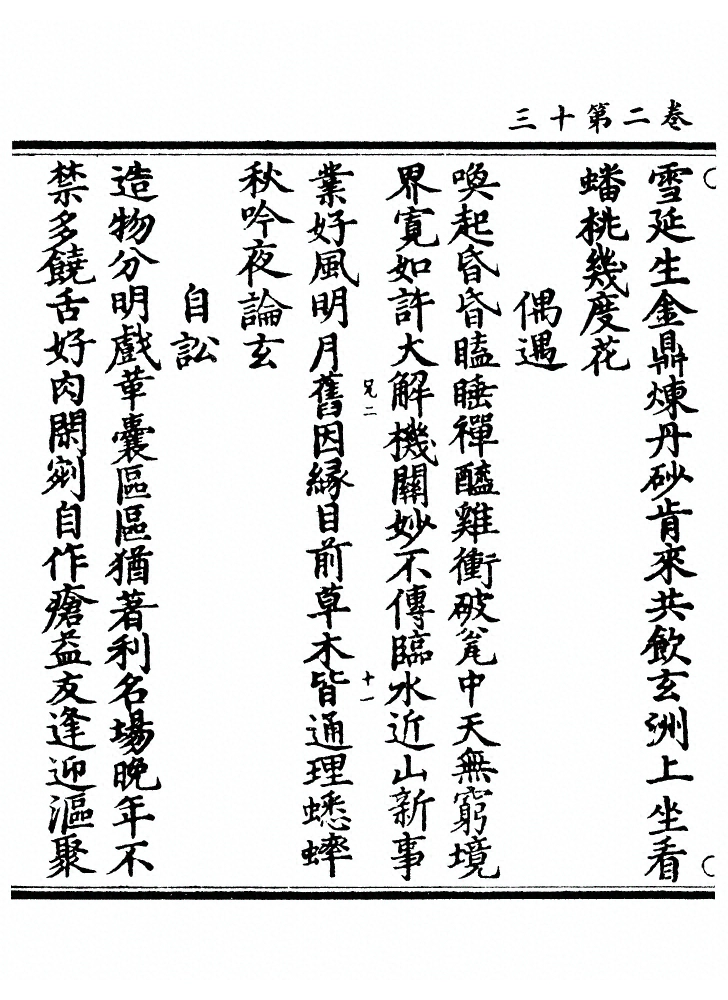 三十第二卷
雪延生金鼎煉丹砂肯來共飲玄洲上坐看
蟠桃幾度花
偶遇
喚起昏昏瞌睡禪醯雞衝破瓮中天無窮境
界寬如許大解機關妙不傳臨水近山新事
業好風明月舊因緣目前草木皆通理蟋蟀
兄二
十一
秋吟夜論玄
自訟
造物分明戲革囊區區猶著利名場晚年不
禁多饒舌好肉閑剜自作瘡益友逢迎漚聚